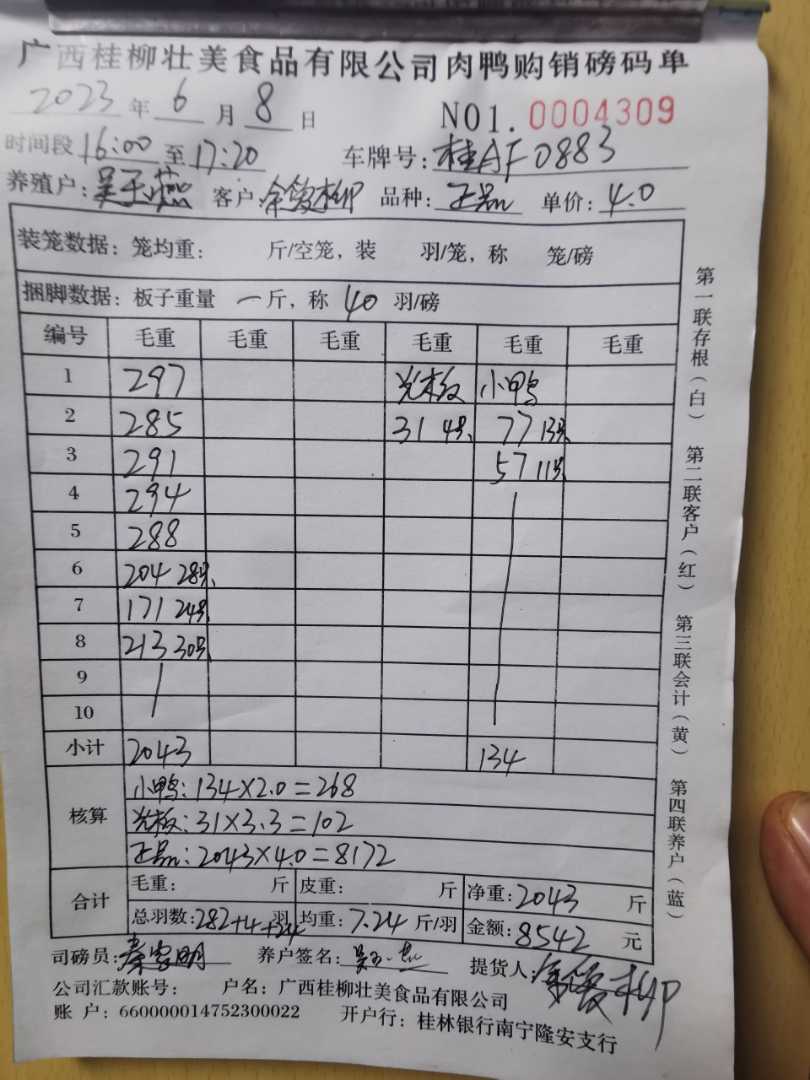 广西桂柳壮美食品有限公司肉鸭购销磅码单
2023年6月8日 NO1.0004309
时间段16:00至17:20 车牌号:桂AF0883
养殖户:吴玉燕 客户: 品种:正品 单价:4.0
装笼数据:笼均重: 斤/空笼,装 羽/笼,称 笼/磅
捆脚数据:板子重量 一斤,称40羽/磅
编号 毛重 毛重 毛重 毛重 毛重 毛重
1 297 光板 小鸭
2 285 31 4只 77 13只
3 291 57 11只
4 294
5 288
6 204 28只
7 171 24只
8 213 30只
9
10
小计 2043 134
核算
小鸭:134×2.0=268
光板:31×3.3=102
正品:2043×4.0=8172
合计
毛重: 斤 皮重: 斤 净重:2043斤
总羽数:282+4+24羽 均重:7.24斤/羽 金额:8542元
司磅员: 养户签名: 提货人:
公司汇款账号: 户名:广西桂柳壮美食品有限公司
账 户:660000014752300022 开户行:桂林银行南宁隆安支行
第一联存根(白) 第二联客户(红) 第三联会计(黄) 第四联养户(蓝)